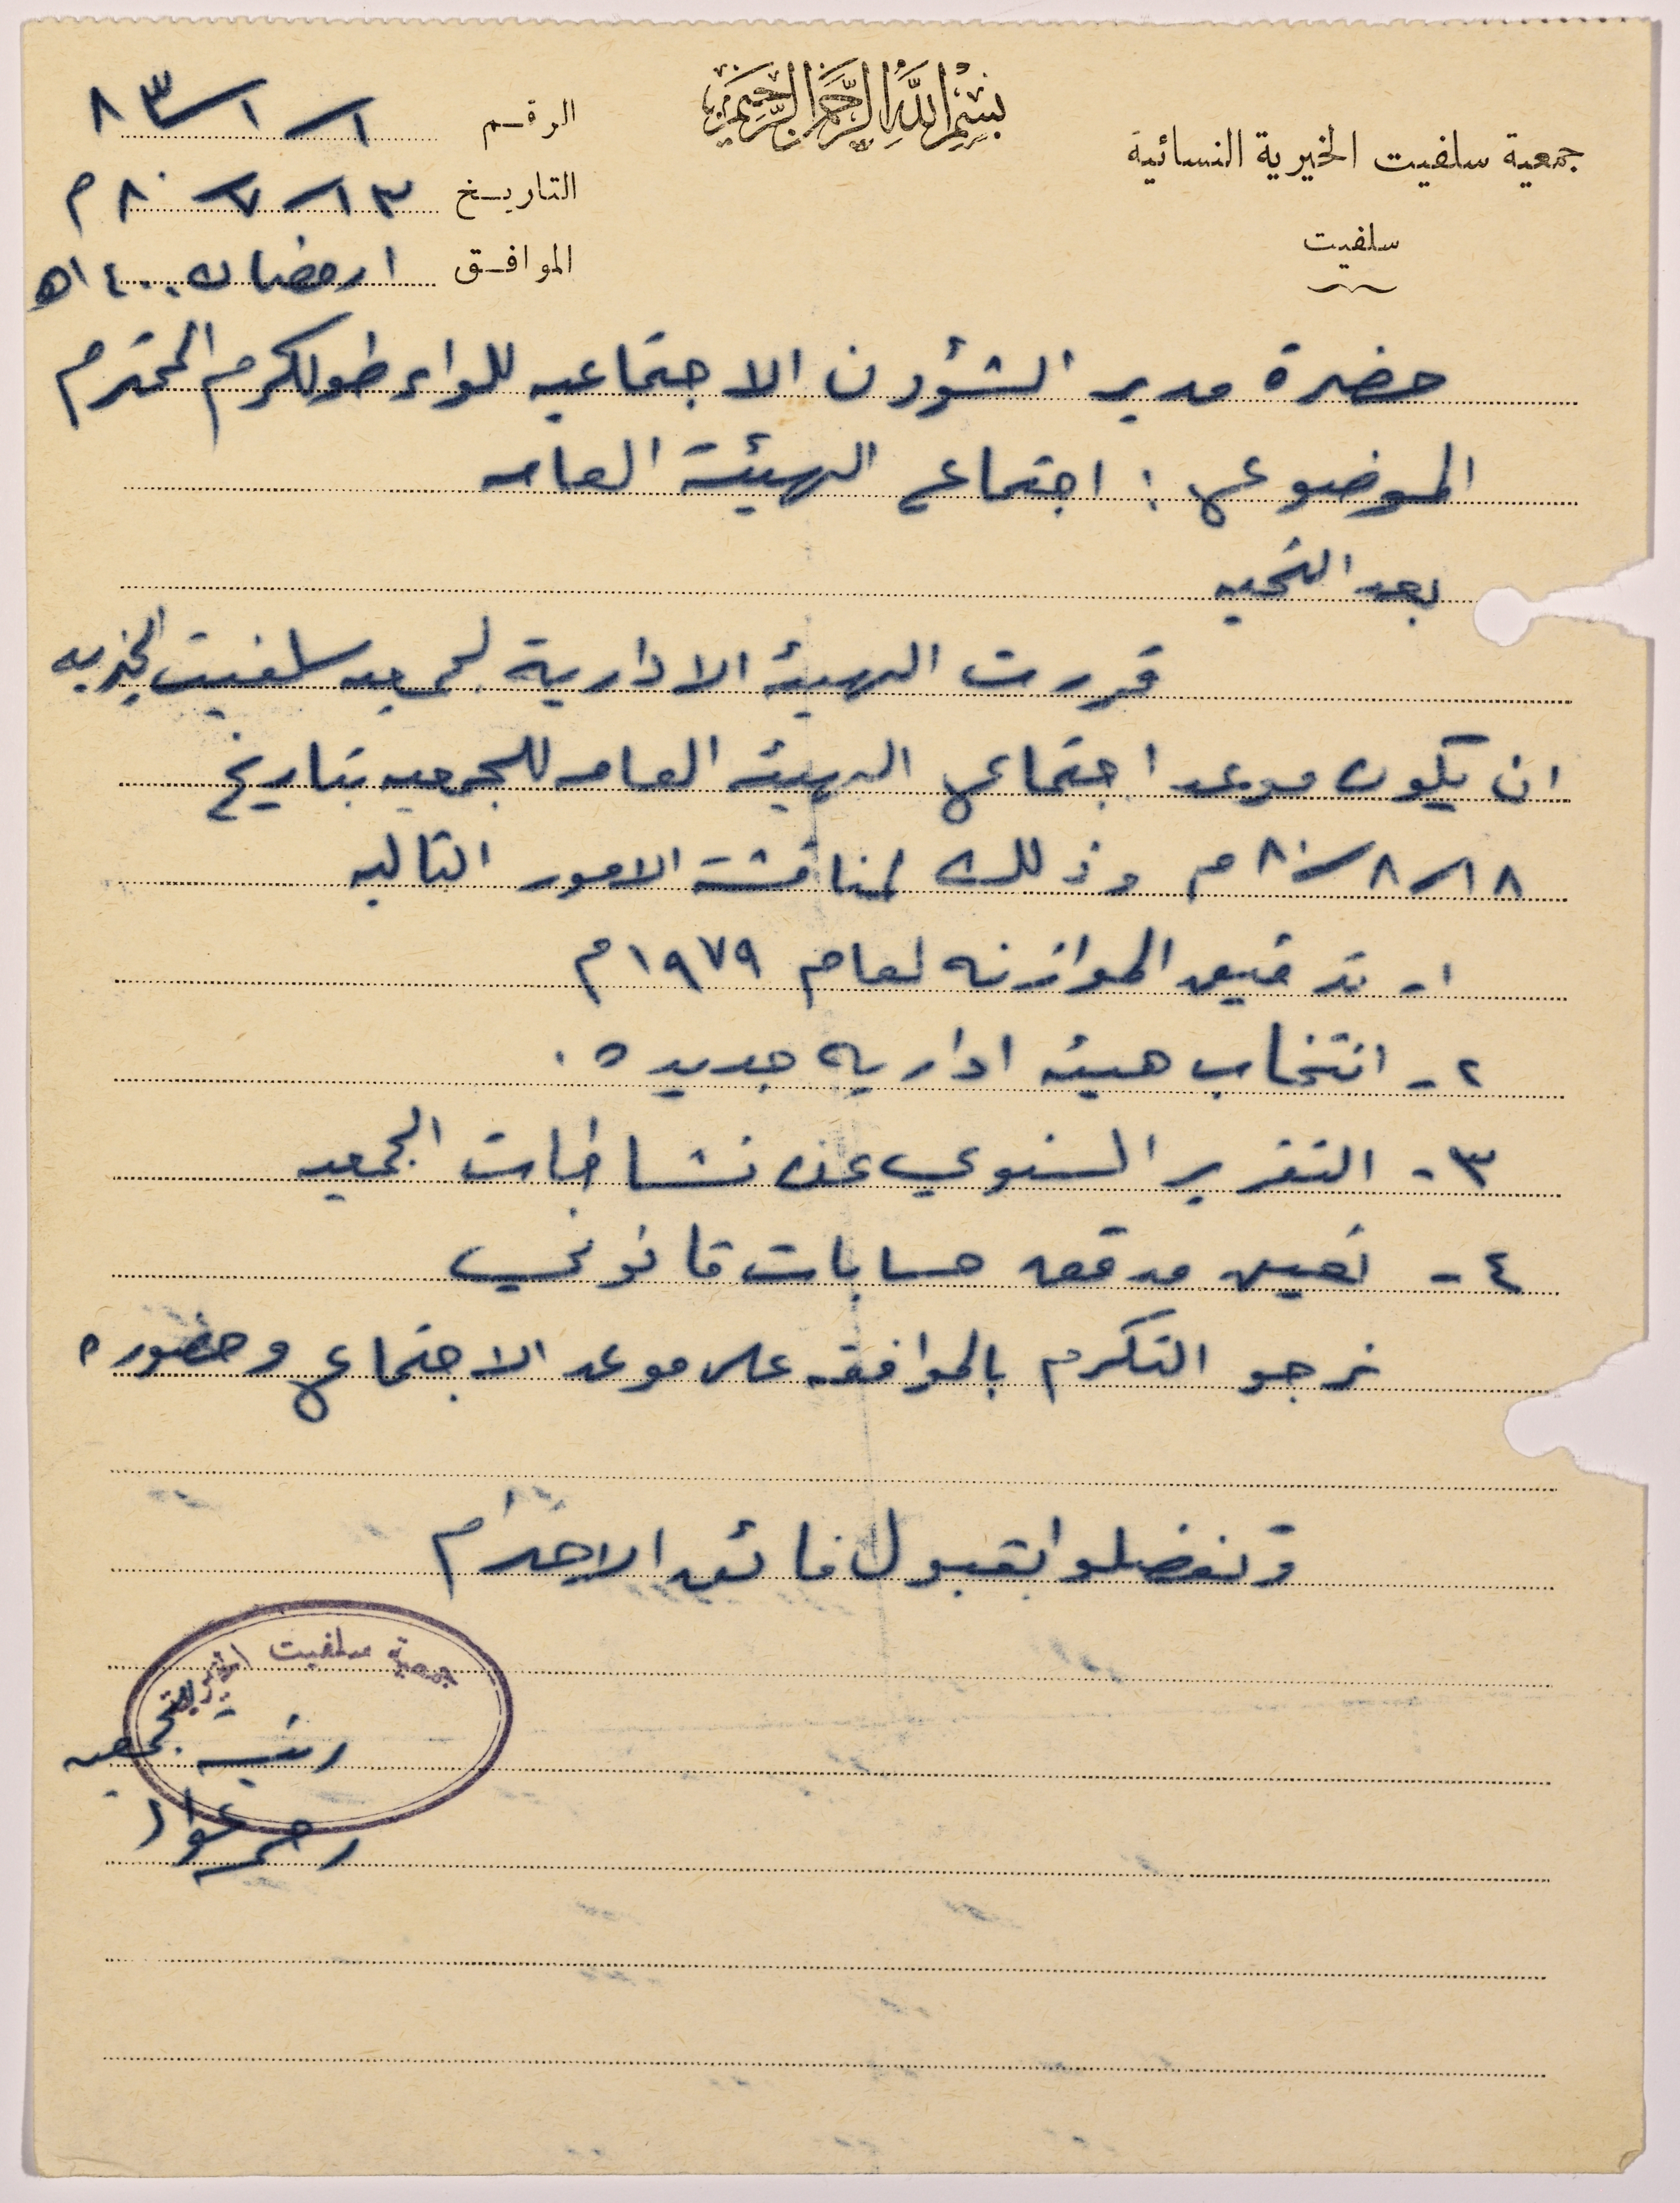 بسم الله الرحمن الرحيم
جمعية سلفيت الخيرية النسائية
سلفيت
الرقم ١/١/٨٣
التاريخ ١٣/٧/٨٠م
الموافق ١ رمضان ١٤٠٠ه
حضرة مدير الشؤون الاجتماعيه للواء طولكرم المحترم
الموضوع : اجتماع الهيئة العامه
بعد التحيه
قررت الهيئه الادارية لجمعيه سلفيت الخيريه
ان يكون موعد اجتماع الهيئه العامه للجمعيه بتاريخ
١٨/٨/٨٠م وذلك لمناقشة الامور التاليه
١- تدقيق الموازنه لعام ١٩٧٩م
٢- انتخاب هيئه اداريه جديده .
٣- التقرير السنوي عن نشاطات الجمعيه
٤- تعيين مدقق حسابات قانوني
نرجو التكرم بالموافقه على موعد الاجتماع وحضوره
وتفضلوا بقبول فائق الاحترام
جمعية سلفيت الخيرية
رئيسة الجمعيه
عواد